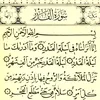 سُورَةُ القَدْرِ
بِسْمِ اللَّهِ الرَّحْمَٰنِ الرَّحِيمِ
إِنَّا أَنزَلْنَاهُ فِي لَيْلَةِ الْقَدْرِ وَمَا أَدْرَاكَ مَا
لَيْلَةُ الْقَدْرِ لَيْلَةُ الْقَدْرِ خَيْرٌ مِّنْ أَلْفِ شَهْرٍ
تَنَزَّلُ الْمَلَائِكَةُ وَالرُّوحُ فِيهَا بِإِذْنِ رَبِّهِم مِّن
كُلِّ أَمْرٍ سَلَامٌ هِيَ حَتَّىٰ مَطْلَعِ الْفَجْرِ